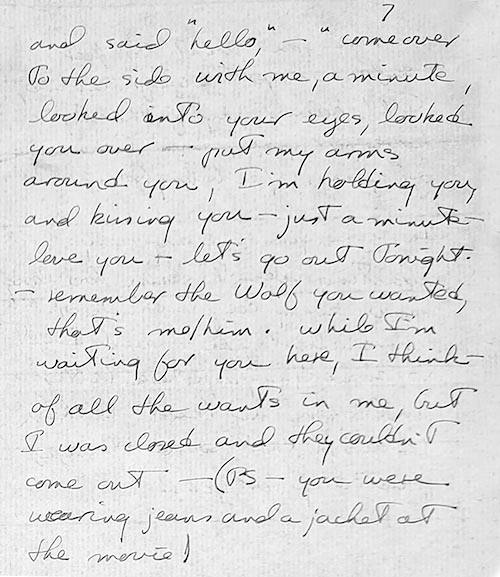 7
and said "hello," – "come over
to the side with me, a minute,
looked into your eyes, looked
you over – put my arms
around you, I'm holding you,
and kissing you – just a minute –
love you – let's go out tonight.
– remember the Wolf you wanted,
that's me/him. while I'm
waiting for you here, I think –
of all the wants in me, but
I was closed and they couldn't
come out – (PS – you were
wearing jeans and a jacket at
the movie)